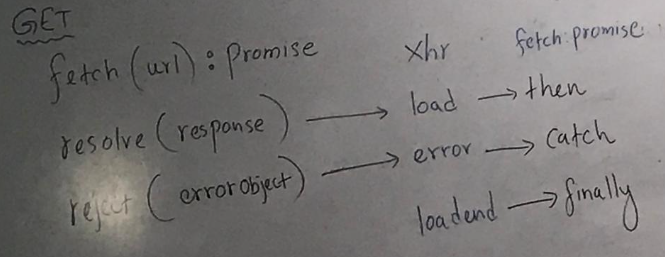 GET
fetch (url) : promise xhr fetch:promise
resolve (response) → load → then
reject (errorobject) → error → catch
loadend → finally